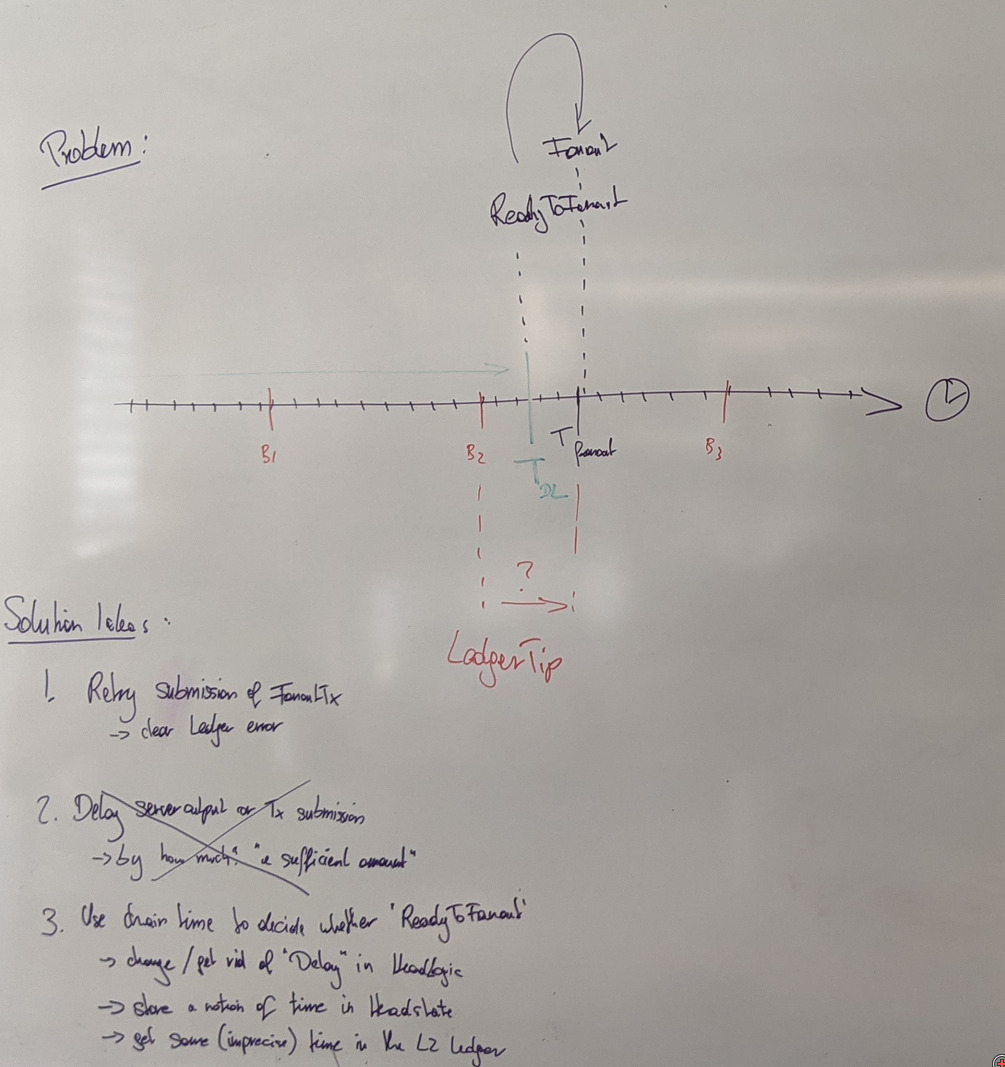 Problem:
Fanout
ReadyToFanout
B1
B2
T fanout
B3
T DL
?
LedgerTip
Solution Ideas:
1. Retry submission of FanoutTx
-> clear Ledger error
2. Delay server output or Tx submission
-> by how much? "a sufficient amount"
3. Use chain time to decide whether 'ReadyToFanout'
-> change / get rid of "Delay" in HeadLogic
-> store a notion of time in HeadState
-> get some (imprecise) time in the L2 ledger